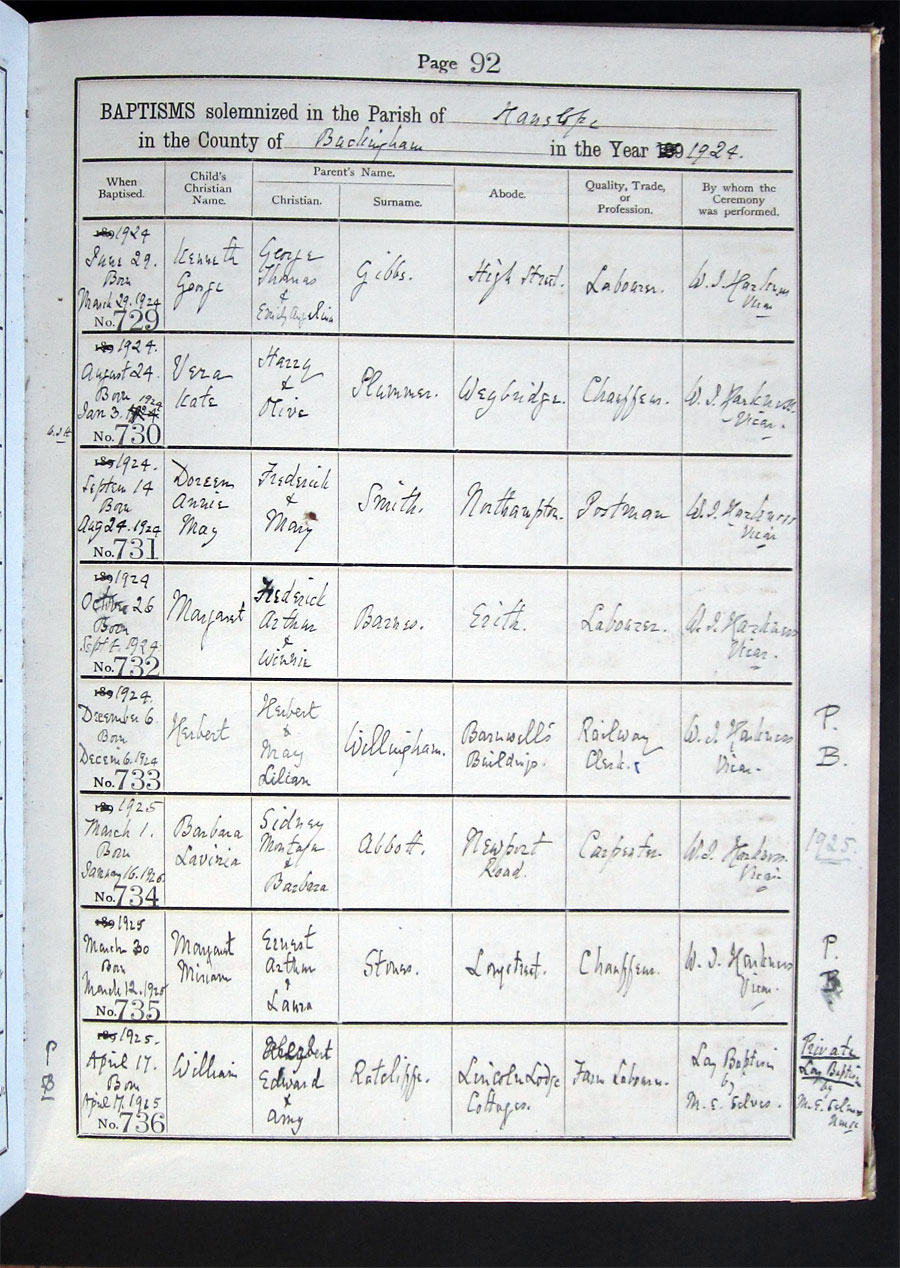 Page 92
BAPTISMS solemnized in the Parish of Hanslope
in the County of Buckingham in the Year 189 1924.
When Baptised.
Child's Christian Name.
Parent's Name.
Christian.
Surname.
Abode.
Quality, Trade, or Profession.
By whom the Ceremony was performed.
189 1924
June 29.
Born
March 29. 1924
No. 729
Kenneth
George
George
Thomas
&
Emily Angelina
Gibbs.
High Street.
Labourer.
W. J. Harkness
Vicar
189 1924.
August 24.
Born
Jan 3. 1924
No. 730
Vera
Kate
Harry
&
Olive
Plummer.
Weybridge.
Chauffeur.
W. J. Harkness.
Vicar.
W.J.H
189 1924.
Septem 14
Born
Aug 24. 1924
No. 731
Doreen
Annie
May
Frederick
&
Mary
Smith.
Northampton.
Postman
W. J. Harkness
Vicar
189 1924
October 26
Born
Sept 1924
No. 732
Margaret
Frederick
Arthur
&
Winnie
Barnes.
Erith.
Labourer.
W. J. Harkness
Vicar.
189 1924.
December 6.
Born
Decem 6. 1924
No. 733
Herbert
Herbert
&
May
Lilian
Willingham.
Barnwell's
Buildings.
Railway
Clerk.
W. J. Harkness
Vicar.
P.
B.
189 1925
March 1.
Born
January 16. 1925
No. 734
Barbara
Lavinia
Sidney
Montagu
&
Barbara
Abbott.
Newport
Road.
Carpenter.
W. J. Harkness.
Vicar
1925.
189 1925
March 30
Born
March 12. 1925
No. 735
Margaret
Miriam
Ernest
Arthur
&
Laura
Stones.
Longstreet.
Chauffeur.
W. J. Harkness
Vicar.
P.
B.
189 1925.
April 17.
Born
April 17. 1925
No. 736
William
Edward
&
Amy
Ratcliffe.
Lincoln Lodge
Cottages.
Farm Labourer.
Lay Baptism
by
M. E.
P
B
Private
Lay Baptism
by
M. E.
Nurse